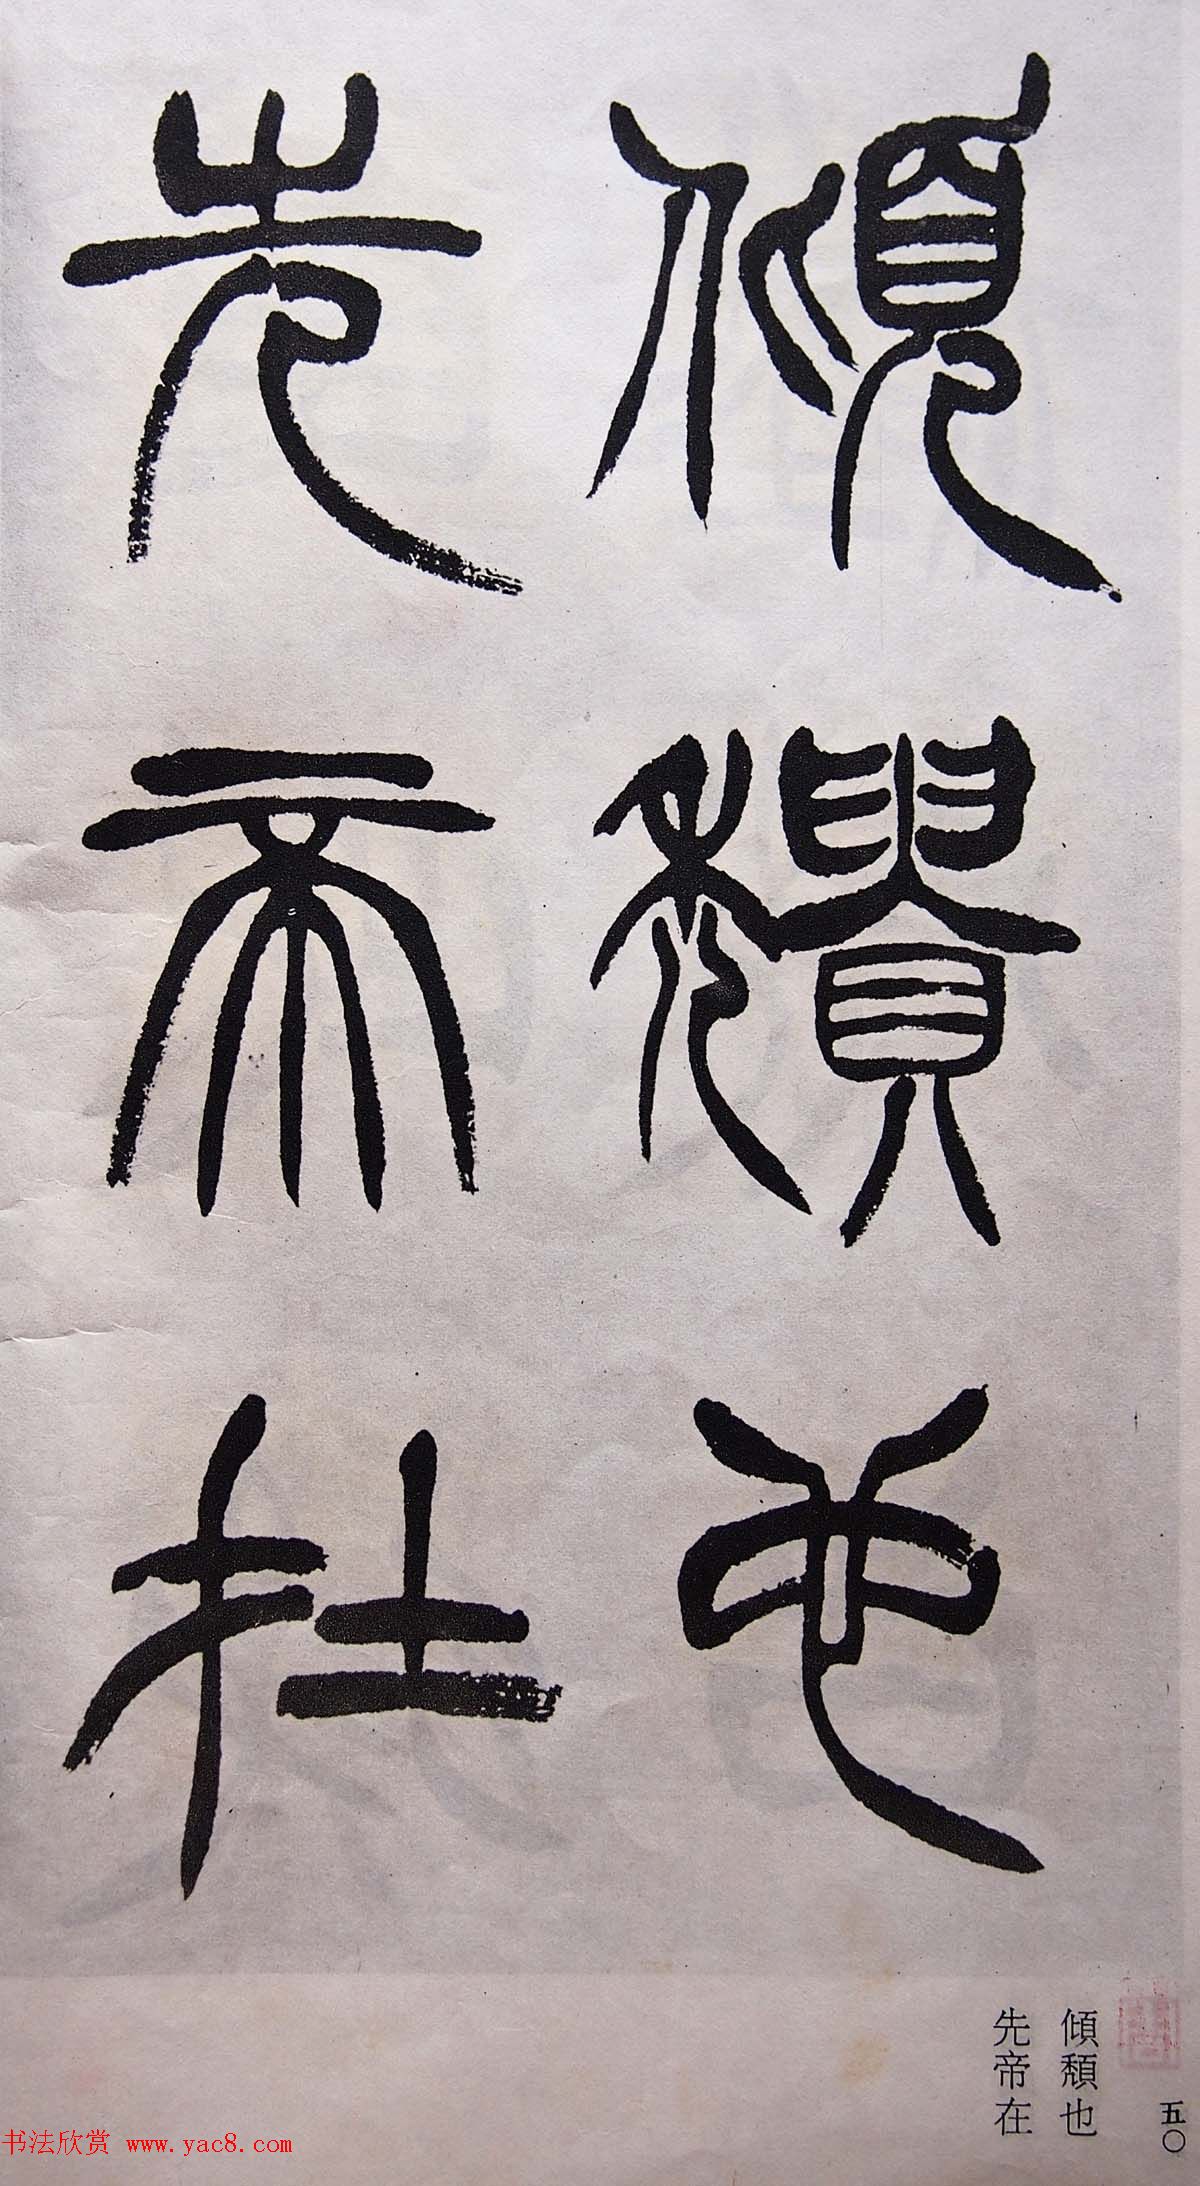 傾頹也
先帝在
傾頹也
先帝在
五〇
书法欣赏 www.yac8.com